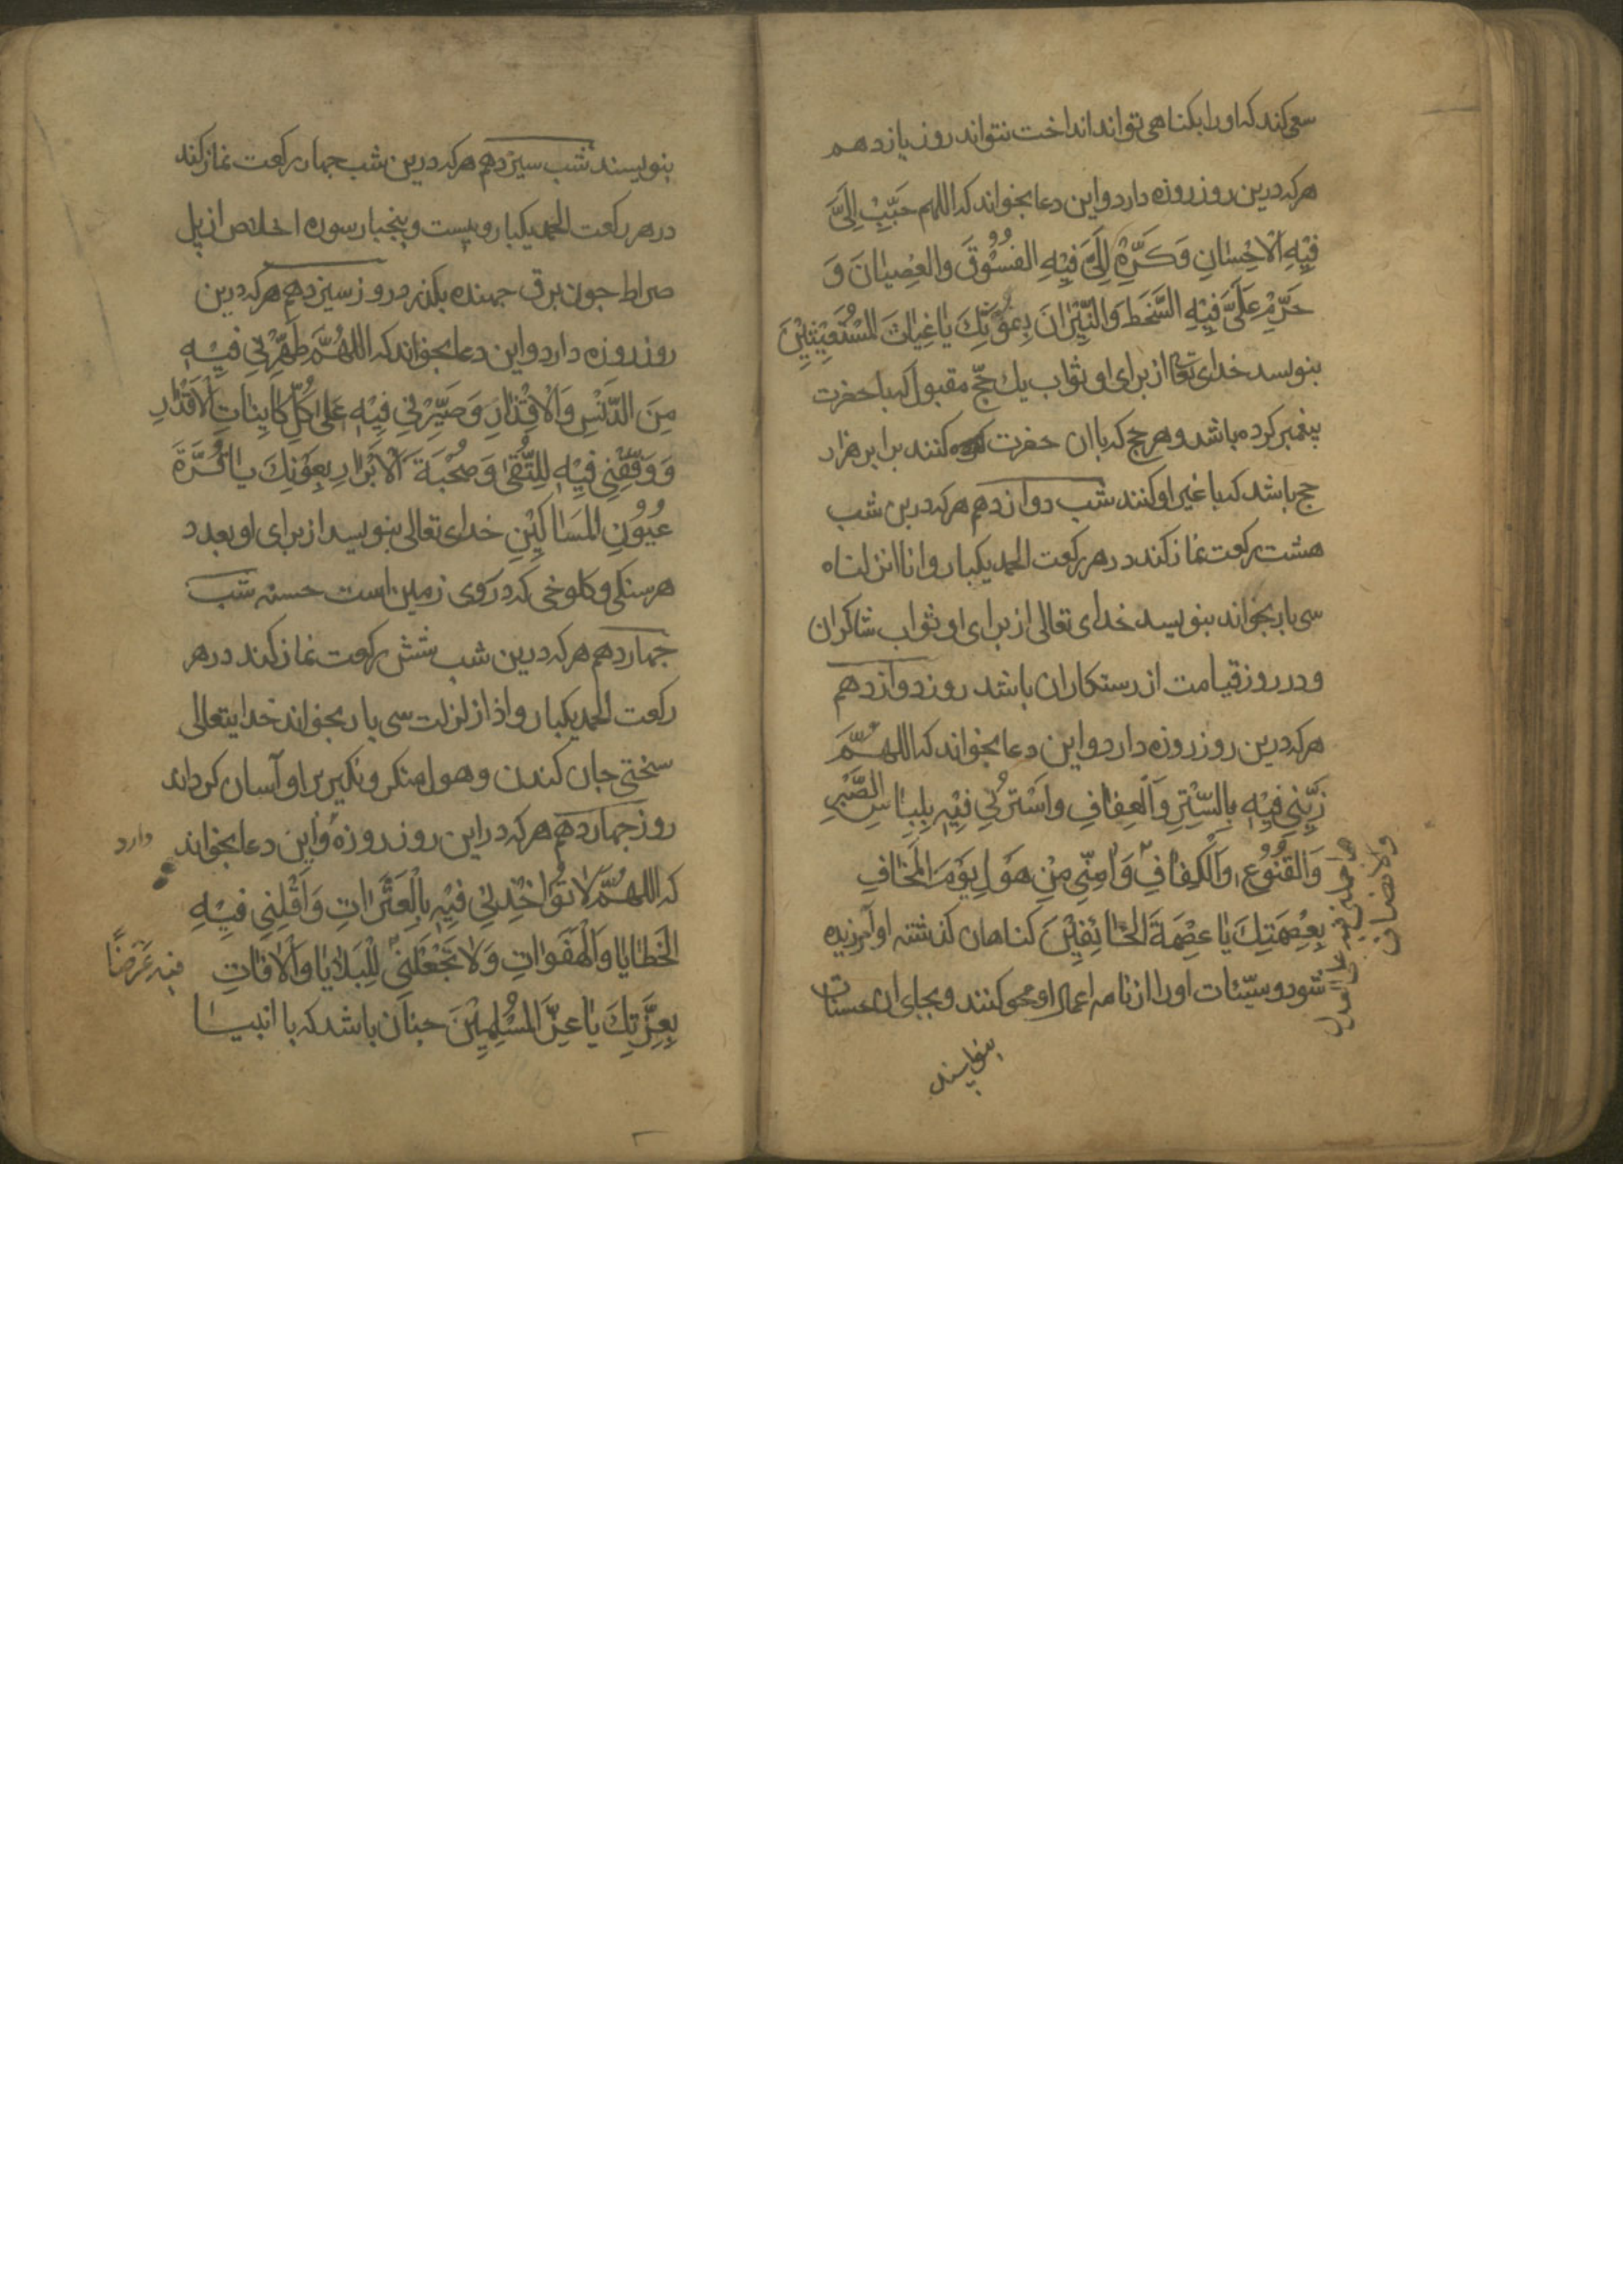 سعی کند که اورا بکناهی تواند انداخت نتواند روز یازدهم
هرکه درین روز روزه دارد و این دعا بخواند که اللهم حَبِّبْ اِلَیَّ
فِیْهِ الْاِحْسٰانِ وَکَرِّهْ اِلَیَّ فِیْهِ الفُسُوْقَ وَالعِصْیٰانَ وَ
حَرِّمْ عَلَیَّ فِیْهِ السَّخَطَ وَالنِّیْرٰانَ بِعَوْنِكَ یٰا غِیٰاثَ المُسْتَغِیْثِیْنَ
بنویسد خدای تعالی از برای او ثواب یك حجّ مقبول که با حضرت
پیغمبر کرده باشد و هر حج که با ان حضرت کنند برابر هزار
حج باشد که با غیر او کنند شب دوازدهم هرکه درین شب
هشت رکعت نماز کند در هر رکعت الحمد یکبار و انا انزلناه
سی بار بخواند بنویسد خدای تعالی از برای او ثواب شاکران
و در روز قیامت از رستکاران باشد روز دوازدهم
هرکه درین روز روزه دارد و این دعا بخواند که اللهُمَّ
زَیِّنِی فِیْهِ بِالسِّتْرِ وَالْعِفٰافِ وَاسْتُرْنِی فِیْهِ بِلِبٰاسِ الصَّبْرِ
وَالقُنُوْعِ وَالْکِفٰافِ وَاٰمِنِّی مِنْ هَوْلِ یَوْمَ الْمَخٰافِ
بِعِصْمَتِكَ یٰا عِصْمَةَ الخٰائِفِیْنَ کناهان کذشته او آمرزیده
شود و سیّئات اورا از نامه اعمال او محو کنند و بجای ان حسنات
واحملنی فیه علی العدل
والانصاف
بنویسند
بنویسند شب سیزدهم هرکه درین شب جهار رکعت نماز کند
در هر رکعت الحمد یکبار و بیست و پنجبار سوره اخلاص از پل
صراط جون برق جهنده بکذرد روز سیزدهم هرکه درین
روز روزه دارد و این دعا بخواند که اللهُمَّ طَهِّرْنِی فِیْهِ
مِنَ الدَّنَسِ وَالْاَقْذٰارِ وَصَبِّرْنِی فِیْهِ عَلٰی کُلِّ کٰایِنٰاتِ الْاَقْدٰارِ
وَوَفِّقْنِی فِیْهِ لِلتُّقٰی وَصُحْبَةَ الْاَبْرٰارِ بِعَوْنِكَ یٰا قُرَّةَ
عُیُوْنِ المَسٰاکِیْنِ خدای تعالی بنویسد از برای او بعدد
هر سنکی و کلوخی که در روی زمین است حسنه شب
جهاردهم هرکه درین شب شش رکعت نماز کند در هر
رکعت الحمد یکبار و اذا زلزلت سی بار بخواند خدایتعالی
سختی جان کندن و هول منکر و نکیر بر او آسان کرداند
روز جهاردهم هرکه در این روز روزه و این دعا بخواند
دارد
که اللهُمَّ لٰا تُؤٰاخِذْنِی فِیْهِ بِالْعَثَرٰاتِ وَاَقْلِنِی فِیْهِ
الخَطٰایٰا وَالْهَفَوٰاتِ وَلٰا تَجْعَلْنِی لِلْبَلٰایٰا وَالْاٰفٰاتِ
فیه غَرَضًا
بِعِزَّتِكَ یٰا عِزَّ المُسْلِمِیْنَ جنان باشد که با انبیا